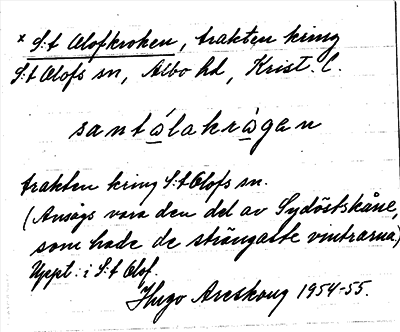 × S:t Olofkroken, trakten kring
S:t Olofs sn, Albo hd, Krist. l.
santålakrågan
trakten kring S:t Olofs sn.
(Ansågs vara den del av Sydöstskåne,
som hade de strängaste vintrarna)
Uppt. i S:t Olof.
Hugo Areskoug 1954-55.